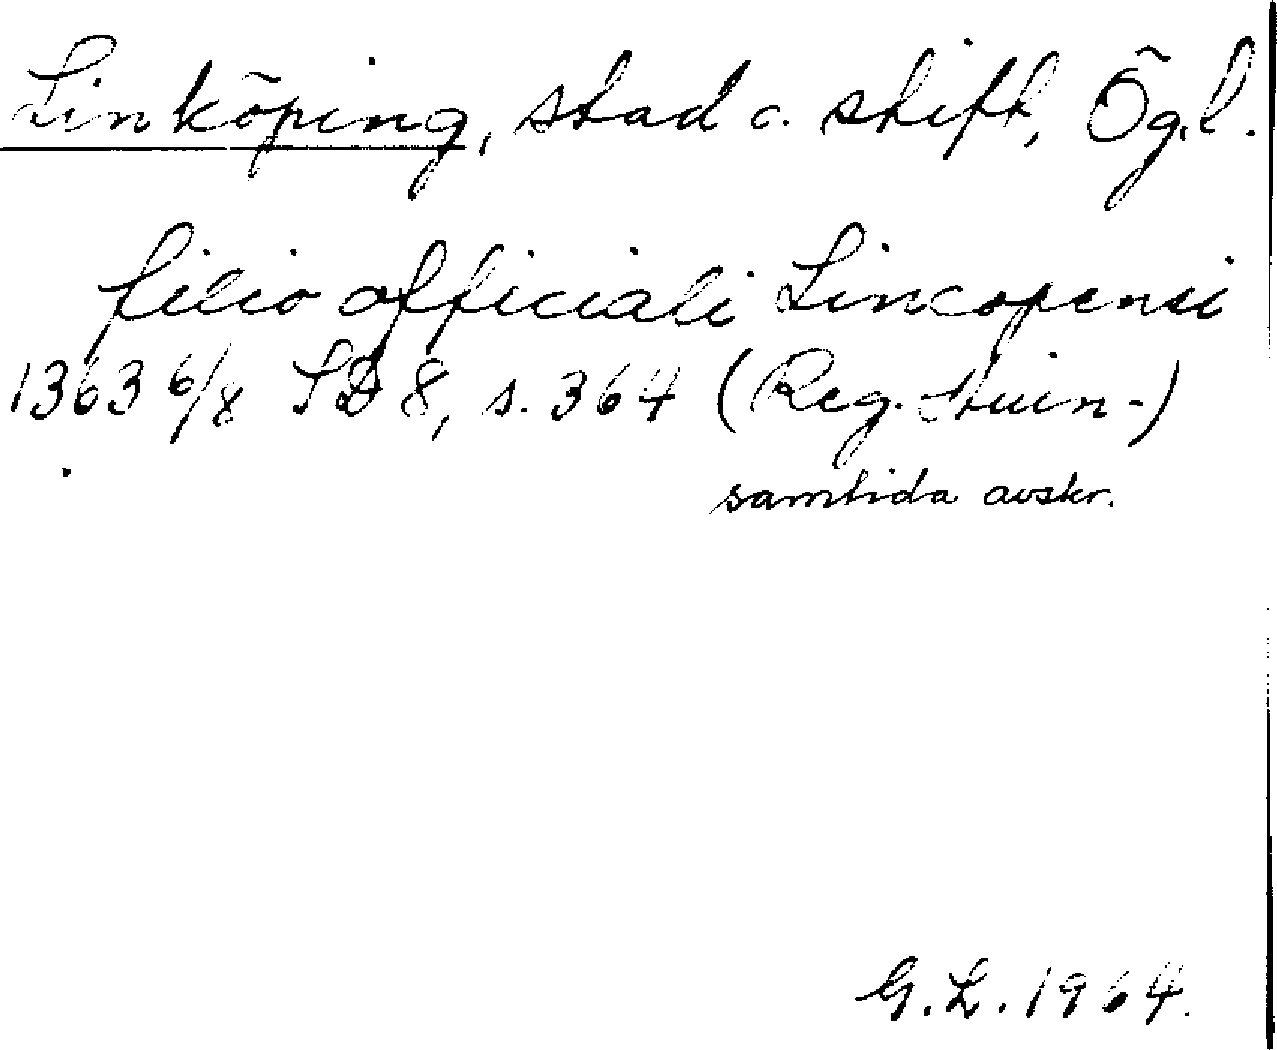 Linköping, stad o. stift, Ög.l.
filio officiali Lincopensi
1363 6/8 SD 8, s. 364 (Reg.
samtida avskr.
G.L. 1964.